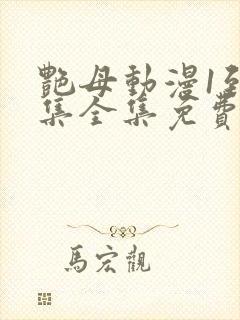 艷母動漫1至
集全集免費
馬宏觀